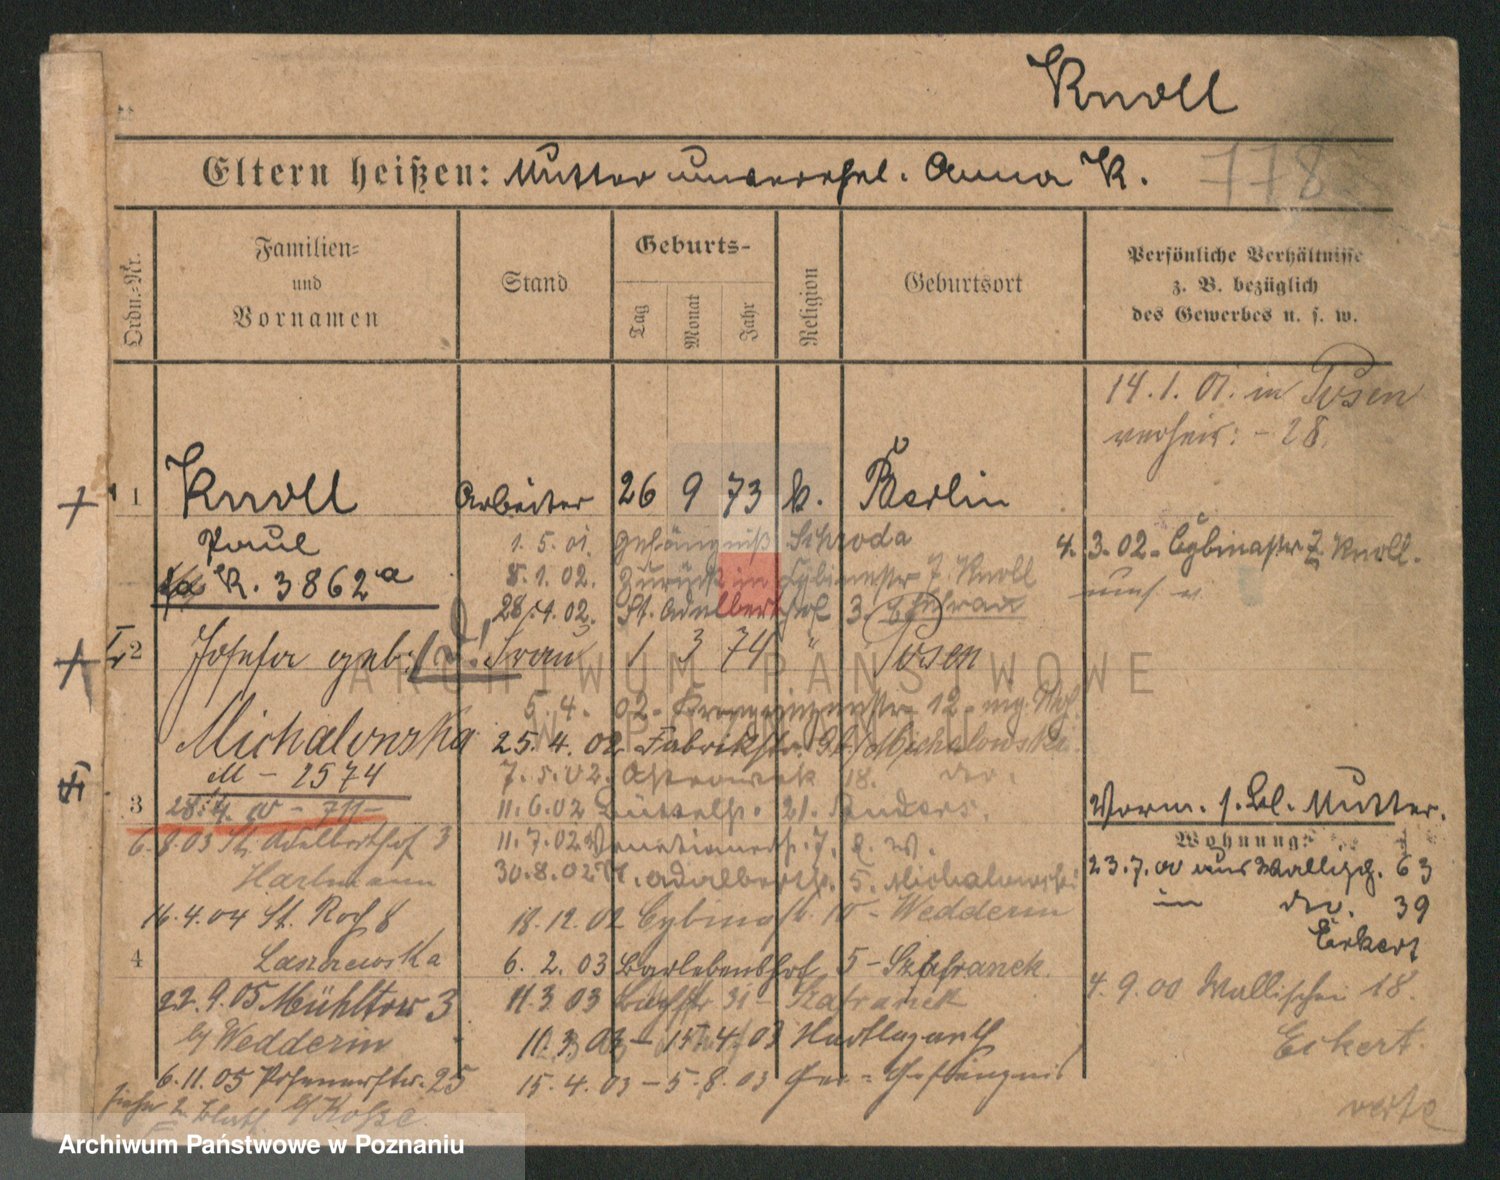 Knoll
Eltern heißen: Mutter unverehel. Anna K.
778
Ordn.-Nr.
Familien-
und
Vornamen
Stand
Geburts-
Tag
Monat
Jahr
Religion
Geburtsort
Persönliche Verhältnisse
z. B. bezüglich
des Gewerbes u. s. w.
14.1.01. in Posen
verheir: - 28.
1 Knoll Arbeiter 26 9 73 k. Berlin
Paul
K. 3862a
1.5.01. Gefängniß Schroda
8.1.02. Zurück in Cybinastr 7. Knoll
28.4.02. St. Adalbertstr 3.
4.3.02. Cybinastr 7. Knoll.
2 Josefa geb. Frau 1 3 74 " Posen
Michalowska
M - 2574
5.4.02. 12
25.4.02 Fabrikstr. Michalowska
7.5.02. 18. do.
3 28.4.00 - 711-
11.6.02 21.
6.8.03 St. Adalberthof 3
Hartmann
11.7.02 Venetianerstr. 7.
30.8.02 St. Adalbertstr. 5. Michalowski
16.4.04 St. Roch 8
18.12.02 Cybinastr. 10 - Wedderin
4 6.2.03 Barlebenshof 5 - Szafranek.
22.9.05 Mühltor 3
b/ Wedderin
11.3.03 31 - Szafranek
10.3.03 - 15.4.03
6.11.05 Posenerstr. 25
15.4.03 - 5.8.03 Ger. = Gefängnis
siehe 2 Blatt
Vorm. s. Bl. Mutter.
Wohnung:
23.7.00 aus Wallisch. 63
in do. 39
Eckert
4.9.00 Wallischei 18.
Eckert.
verte
ARCHIWUM PAŃSTWOWE
W POZNANIU
Archiwum Państwowe w Poznaniu